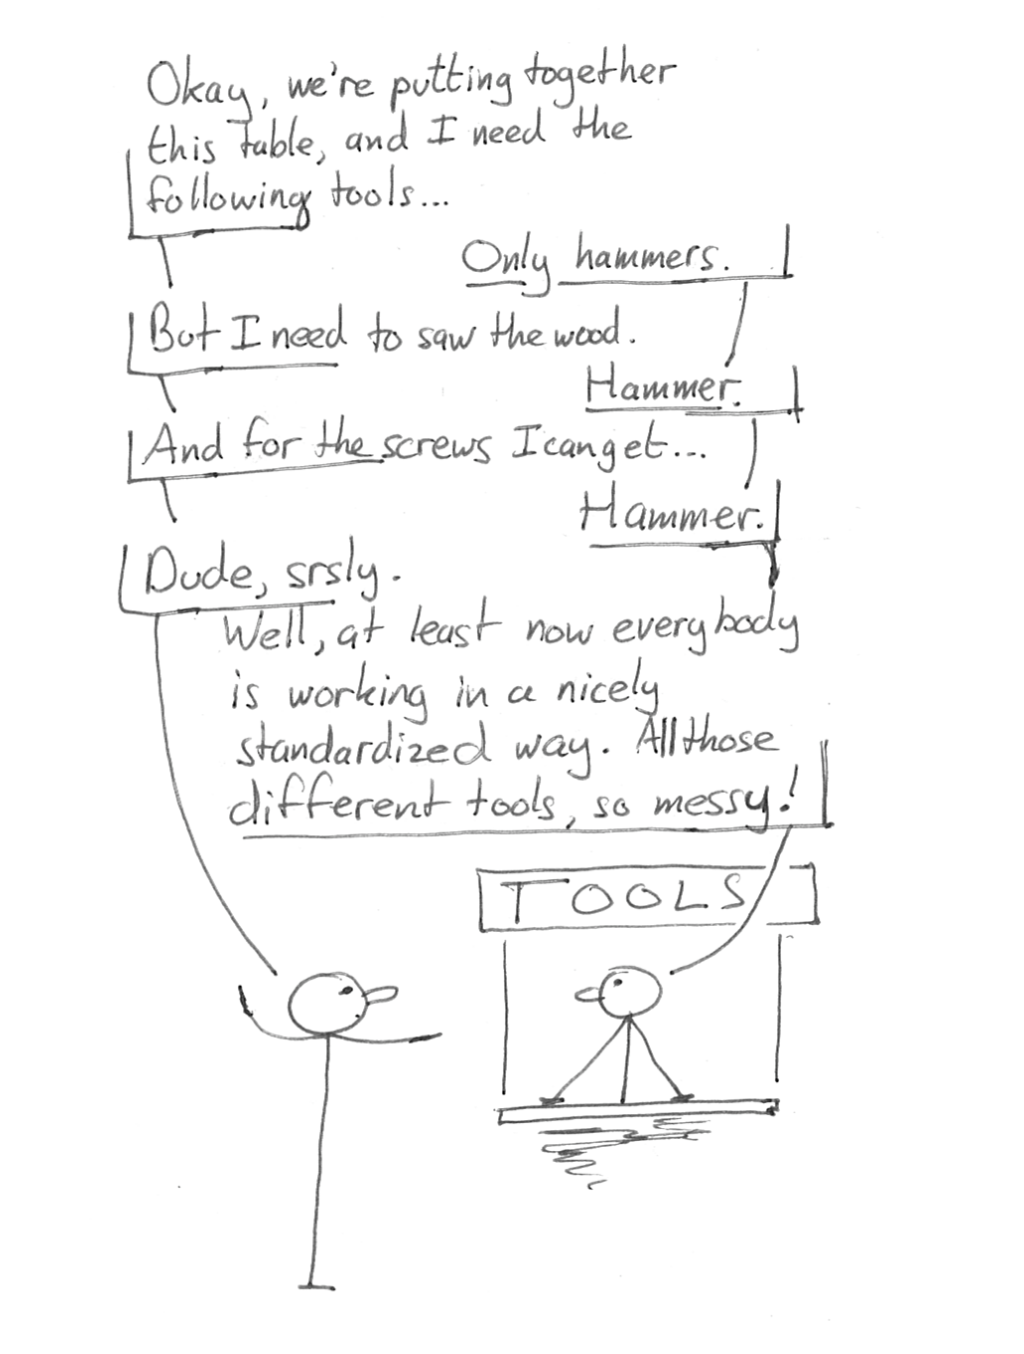 Okay, we're putting together
this table, and I need the
following tools...
Only hammers.
But I need to saw the wood.
Hammer.
And for the screws I can get...
Hammer.
Dude, srsly.
Well, at least now everybody
is working in a nicely
standardized way. All those
different tools, so messy!
TOOLS